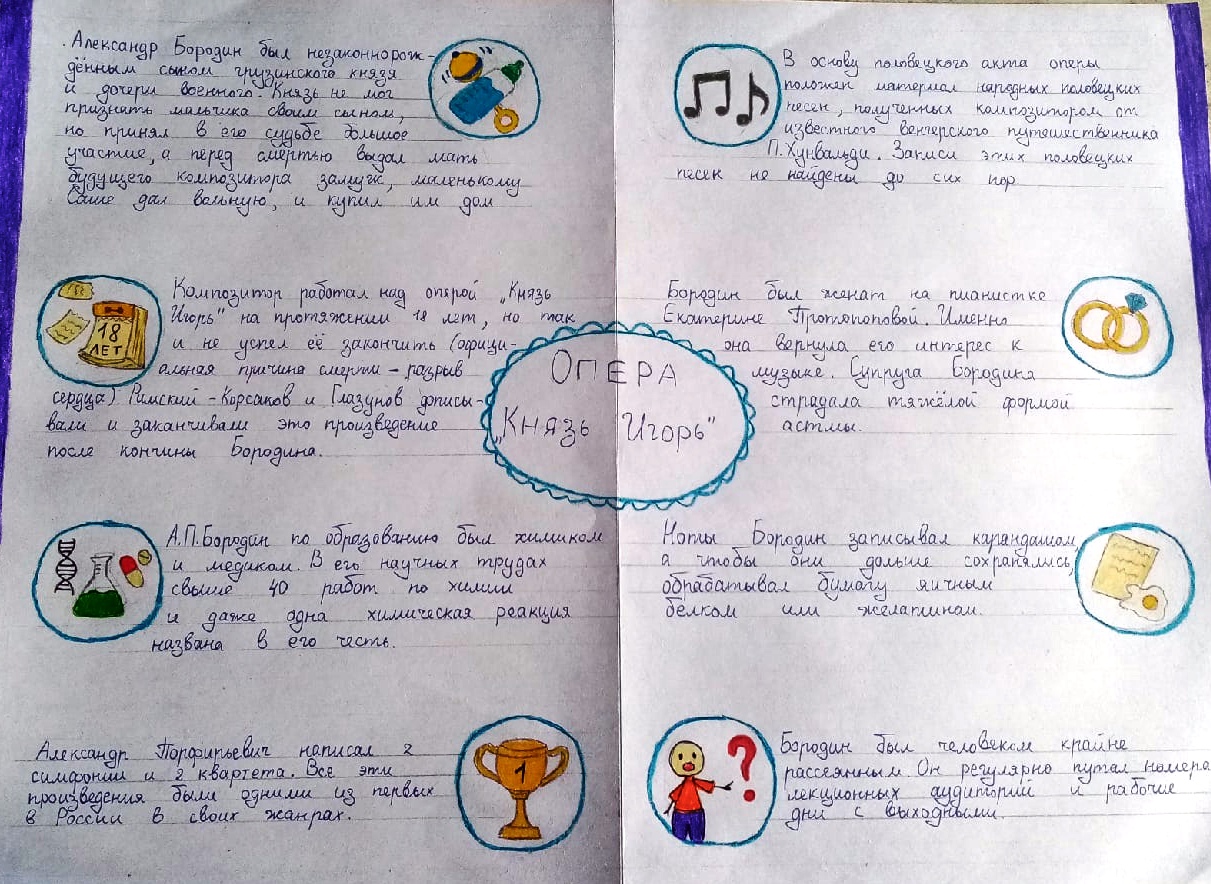 Александр Бородин был незаконнорож-
дённым сыном грузинского князя
и дочери военного. Князь не мог
признать мальчика своим сыном,
но принял в его судьбе большое
участие, а перед смертью выдал мать
будущего композитора замуж, маленькому
Саше дал вольную, и купил им дом
Композитор работал над оперой „Князь
Игорь" на протяжении 18 лет, но так
и не успел её закончить (офици-
альная причина смерти - разрыв
сердца) Римский - Корсаков и Глазунов дописы-
вали и заканчивали это произведение
после кончины Бородина.
18
ЛЕТ
А.П.Бородин по образованию был химиком
и медиком. В его научных трудах
свыше 40 работ по химии
и даже одна химическая реакция
названа в его честь.
Александр Порфирьевич написал 2
симфонии и 2 квартета. Все эти
произведения были одними из первых
в России в своих жанрах.
1
ОПЕРА
„Князь Игорь"
В основу половецкого акта оперы
положен материал народных половецких
песен, полученных композитором от
известного венгерского путешественника
П.Хунвальди. Записи этих половецких
песен не найдены до сих пор
Бородин был женат на пианистке
Екатерине Протопоповой. Именно
она вернула его интерес к
музыке. Супруга Бородина
страдала тяжёлой формой
астмы.
Ноты Бородин записывал карандашом,
а чтобы они дольше сохранялись,
обрабатывал бумагу яичным
белком или желатином.
Бородин был человеком крайне
рассеянным. Он регулярно путал номера
лекционных аудиторий и рабочие
дни с выходными.
?